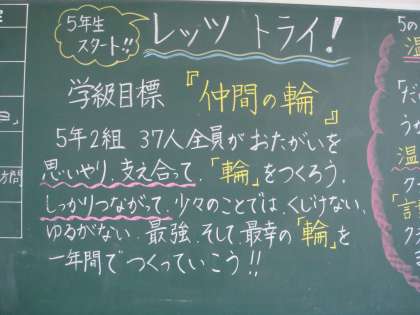 5年生
スタート!!
レッツ トライ!
学級目標『仲間の輪』
5年2組 37人全員が おたがいを
思いやり、支え合って、「輪」をつくろう。
しっかりつながって、少々のことでは、くじけない、
ゆるがない、最強、そして、最幸の「輪」を
一年間でつくっていこう!!